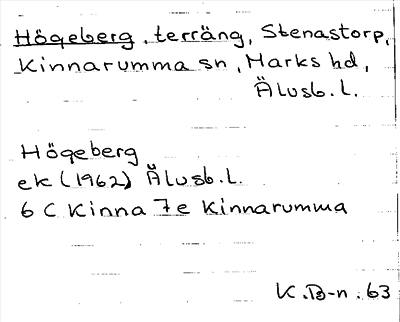 Högeberg, terräng, Stenastorp,
Kinnarumma sn, Marks hd,
Älvsb. l.
Högeberg
ek (1962) Älvsb. l.
6 C Kinna 7e Kinnarumma
K.B-n. 63